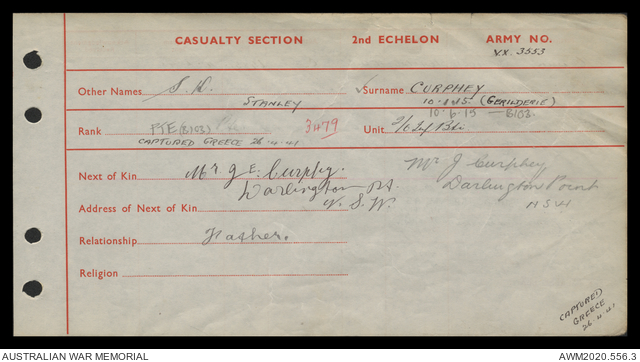 CASUALTY SECTION 2nd ECHELON ARMY NO.
VX. 3553
Other Names S. D. Surname CURPHEY
STANLEY 10.1.15. (GERILDERIE)
10-6-15 — B102.
Rank PTE (B103) 3479 Unit 2/6 Inf Bn
CAPTURED GREECE 26.4.41
Next of Kin Mr J E. Curphy. Mr J Curphey
Darlington Pt Darlington Point
Address of Next of Kin N. S. W. NSW
Relationship Father.
Religion
CAPTURED
GREECE
26.4.41
AUSTRALIAN WAR MEMORIAL AWM2020.556.3